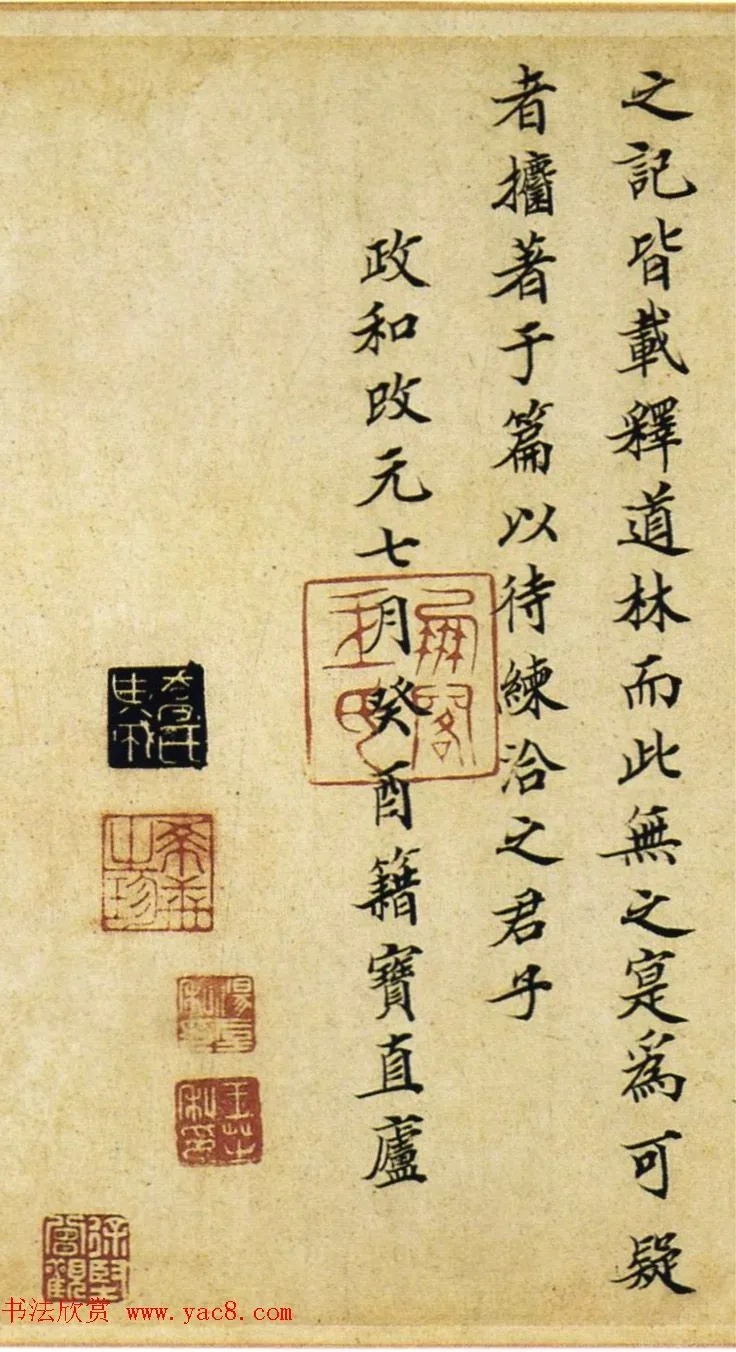 之記皆載釋道林而此無之寔為可疑
者攟著于篇以待練洽之君子
政和改元七月癸酉籍寶直廬
王芝私印
希世之珍
书法欣赏 www.yac8.com